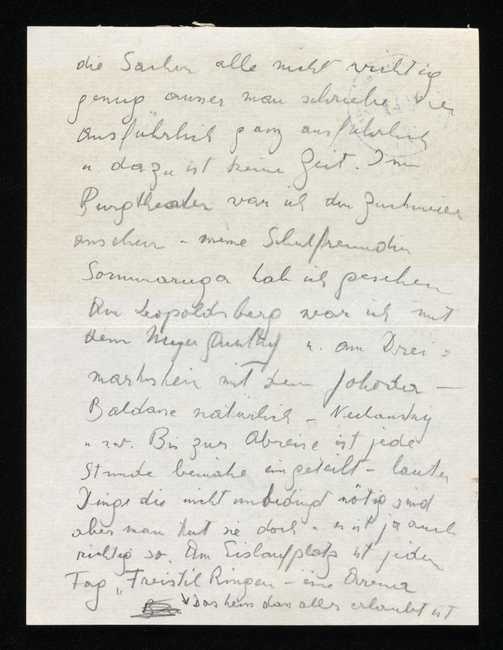 die Sachen alle nicht wichtig
genug ausser man schriebe
ausführlich ganz ausführlich
u. dazu ist keine Zeit. Im
Burgtheater war ich den Zuschauer
anschaun - meine Schulfreundin
Sommaruga hab ich gesehen
Am Leopoldsberg war ich mit
dem Meyer u. am Drei=
markstein mit dem
Baldass natürlich -
u.s.w. Bis zur Abreise ist jede
Stunde beinahe eingeteilt - lauter
Dinge die nicht unbedingt nötig sind
aber man tut sie doch u. es ist ja auch
richtig so. Am Eislaufplatz ist jeden
Tag „Freistil Ringen - eine Arena
Das heisst dass alles erlaubt ist